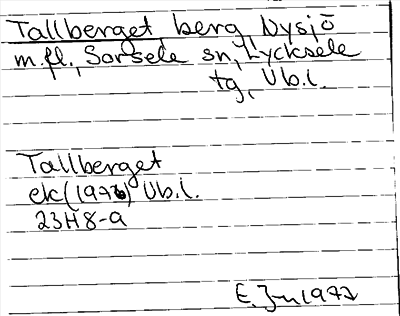 Tallberget, berg, Nysjö
m.fl., Sorsele sn, Lycksele
tg, Vb.l.
Tallberget
ek (1976) Vb.l.
23H8-a
E. J-n 1977